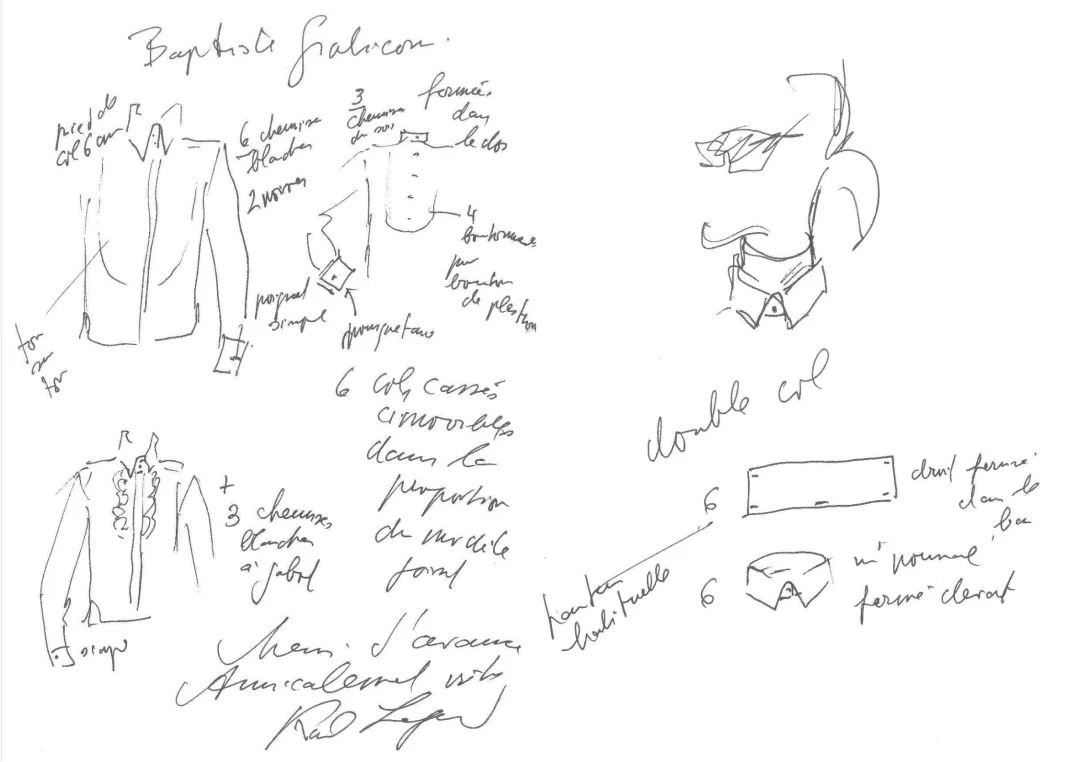 Baptiste Giabiconi
pied de
col 6 cm
6 chemises
blanches
2 noires
3
chemises
du soir
fermées
dans
le dos
4
boutonnières
pour
bouton
de plastron
poignet
simple
mousquetaire
ton
sur
ton
6 cols cassés
amovibles
dans la
proportion
du modèle
+
3 chemises
blanches
à jabot
simple
Merci d'avance
Amicalement votre
Karl Lagerfeld
double col
6
droit fermé
dans le
6
fermé devant
hauteur
habituelle